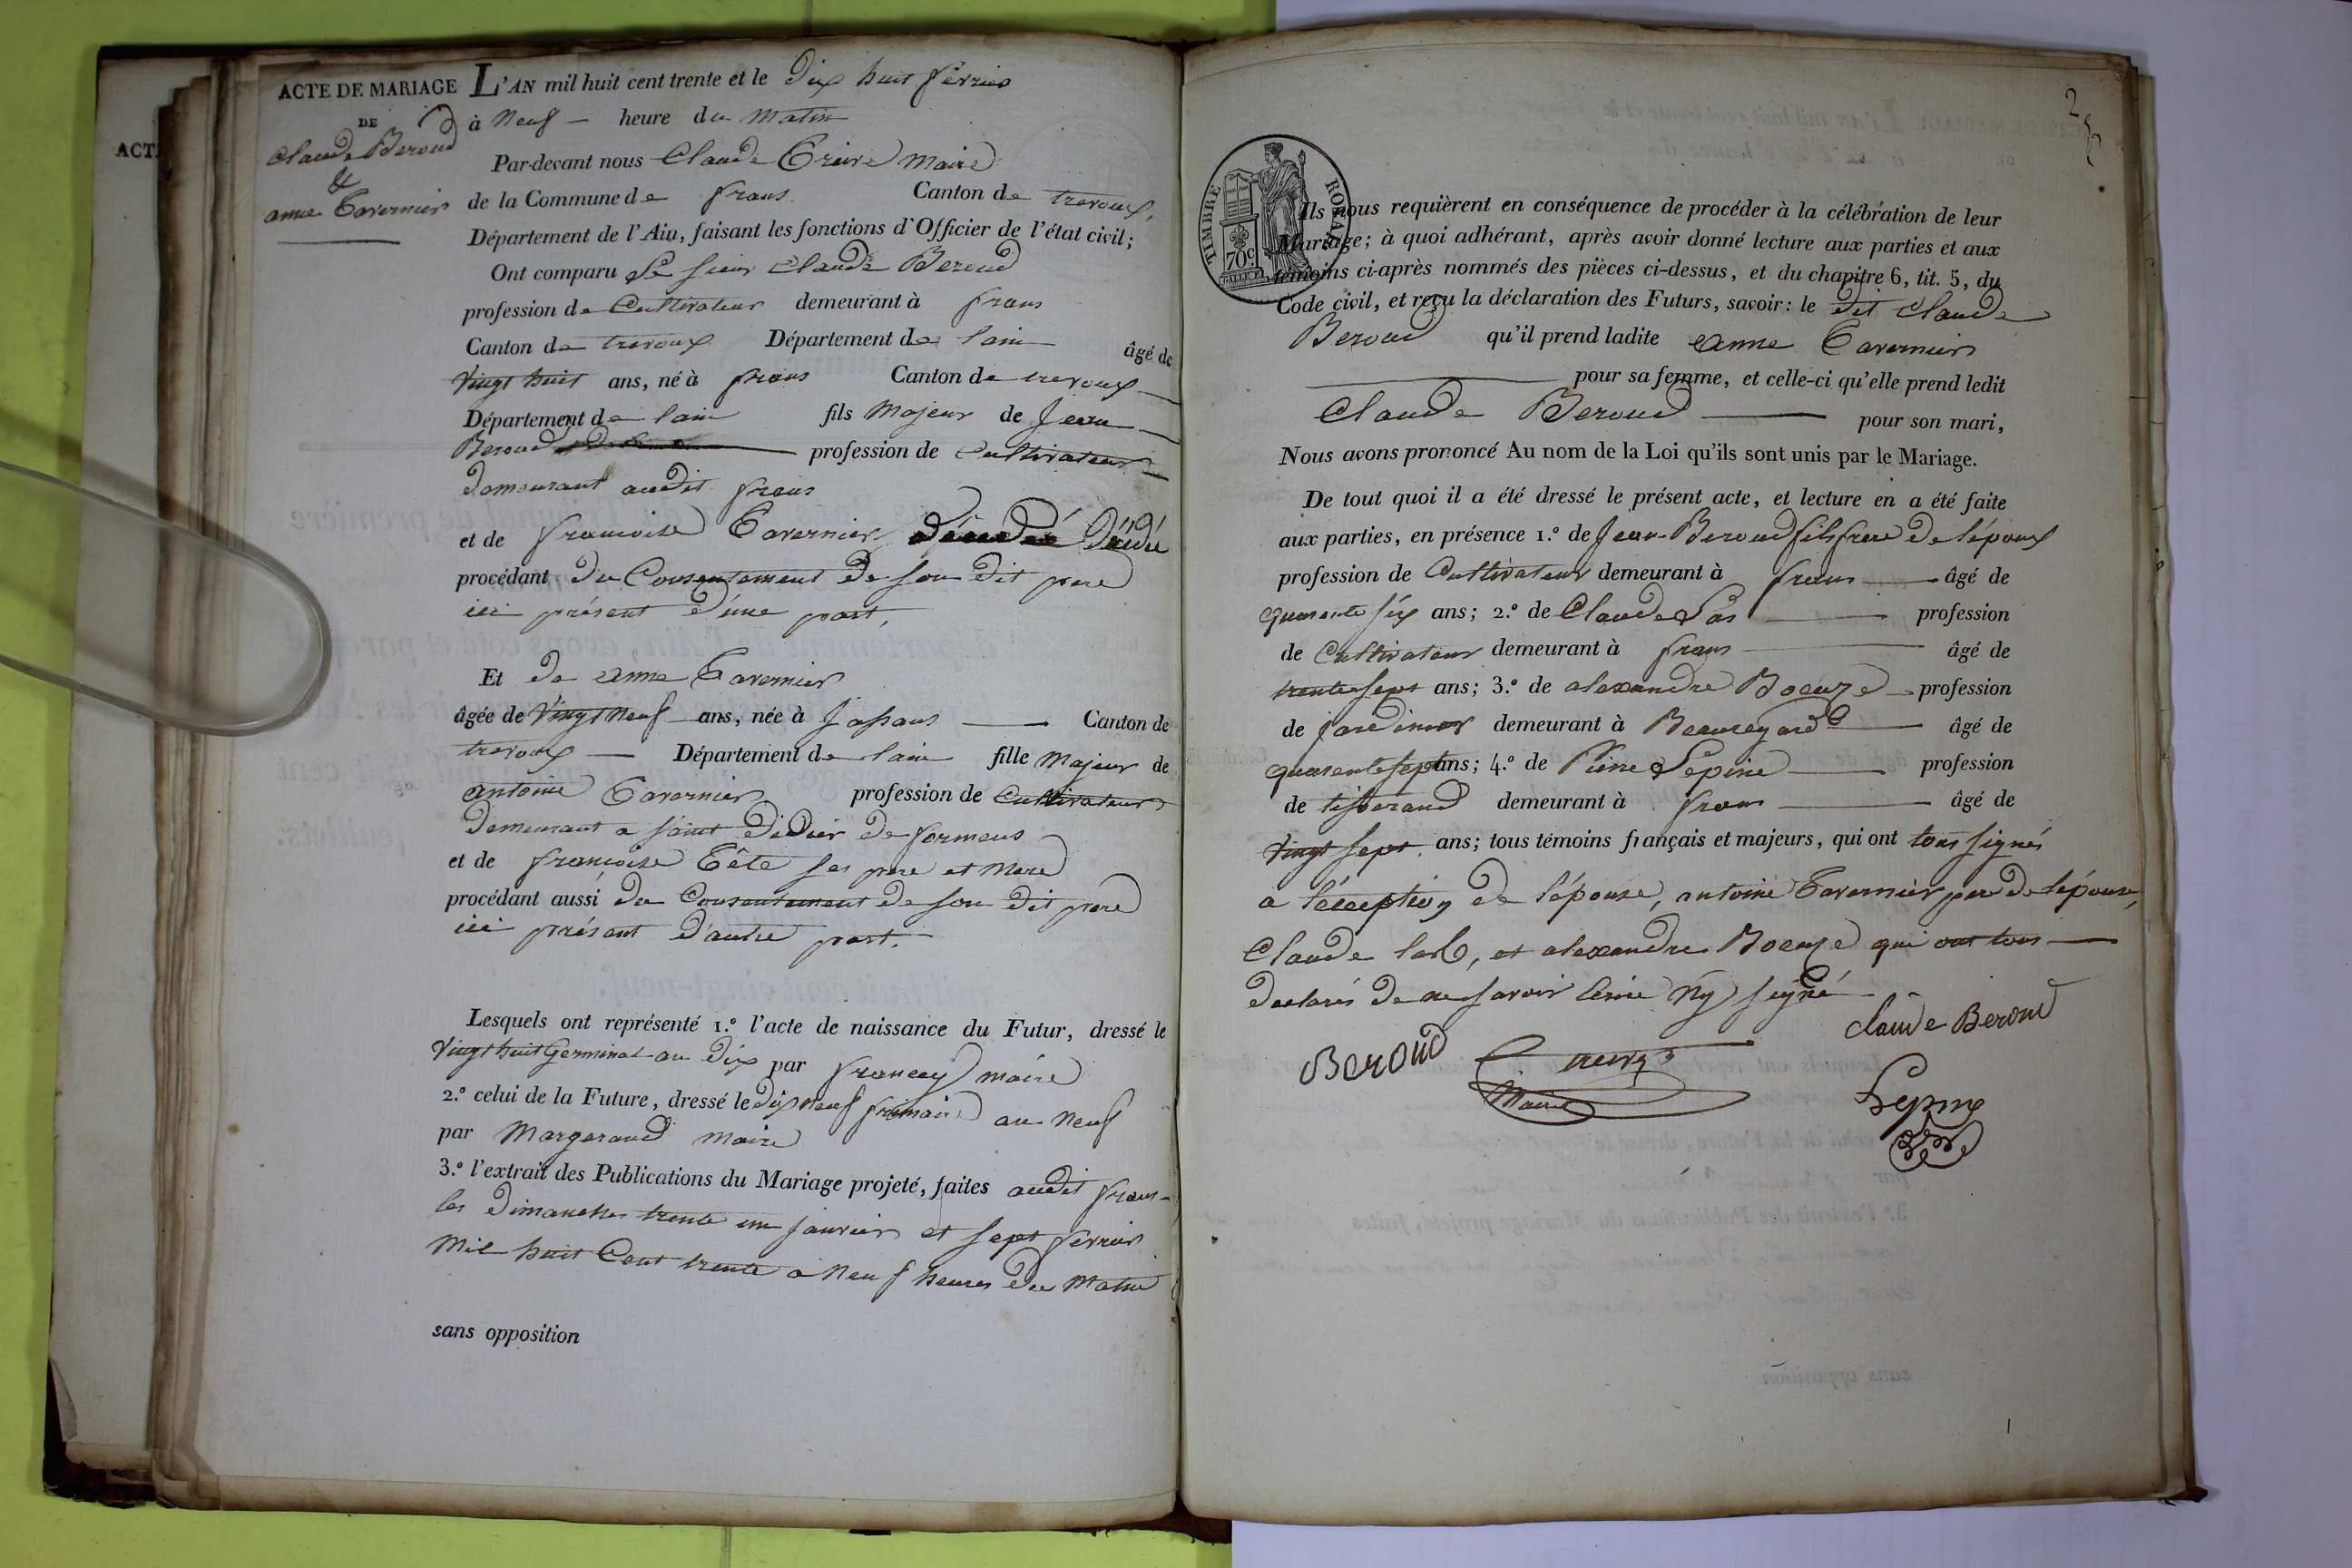 ACT
ACTE DE MARIAGE
DE
Claude Beroud
&
anne Tavernier
L'AN mil huit cent trente et le Dix huit fevrier
à Neuf heure du Matin
Par-devant nous Claude maire
de la Commune de frans Canton de trevoux,
Département de l'Ain, faisant les fonctions d'Officier de l'état civil;
Ont comparu Le sieur Claude Beroud
profession de Cultivateur demeurant à frans
Canton de trevoux Département de lain âgé de
Vingt huit ans, né à frans Canton de trevoux
Département de lain fils Majeur de Jean
Beroud profession de Cultivateur
demeurant audit frans
et de francoise Tavernier Décédée
procédant du Consentement de son dit pere
ici présent d'une part,
Et de anne Tavernier
âgée de Vingt Neuf ans, née à Jassans Canton de
trevoux Département de lain fille Majeur de
antoine Tavernier profession de Cultivateur
demeurant a saint didier de formans
et de françoise Tête ses pere et Mere
procédant aussi du Consentement de son dit pere
ici présent d'autre part.
Lesquels ont représenté 1.° l'acte de naissance du Futur, dressé le
Vingt huit Germinal an dix par maire
2.° celui de la Future, dressé le dix neuf frimaire an Neuf
par Margerand maire
3.° l'extrait des Publications du Mariage projeté, faites audit frans
les dimanches trente un janvier et sept fevrier
Mil huit Cent trente a Neuf heures du Matin
sans opposition
TIMBRE ROYAL
70c
Ils nous requièrent en conséquence de procéder à la célébration de leur
Mariage; à quoi adhérant, après avoir donné lecture aux parties et aux
témoins ci-après nommés des pièces ci-dessus, et du chapitre 6, tit. 5, du
Code civil, et reçu la déclaration des Futurs, savoir: le dit Claude
Beroud qu'il prend ladite anne Tavernier
pour sa femme, et celle-ci qu'elle prend ledit
Claude Beroud pour son mari,
Nous avons prononcé Au nom de la Loi qu'ils sont unis par le Mariage.
De tout quoi il a été dressé le présent acte, et lecture en a été faite
aux parties, en présence 1.° de Jean Beroud fils frere de lépoux
profession de Cultivateur demeurant à frans âgé de
quarente six ans; 2.° de Claude profession
de Cultivateur demeurant à frans âgé de
trente sept ans; 3.° de alexandre profession
de jardinier demeurant à Beauregard âgé de
quarente sept ans; 4.° de Pierre Lepine profession
de tisserand demeurant à frans âgé de
Vingt sept ans; tous témoins français et majeurs, qui ont tous signés
a de lépouse, antoine Tavernier pere de lépouse,
Claude et alexandre qui ont tous
declarés de ne savoir Ny signé
Claude Beroud
Beroud
Maire
Lepine